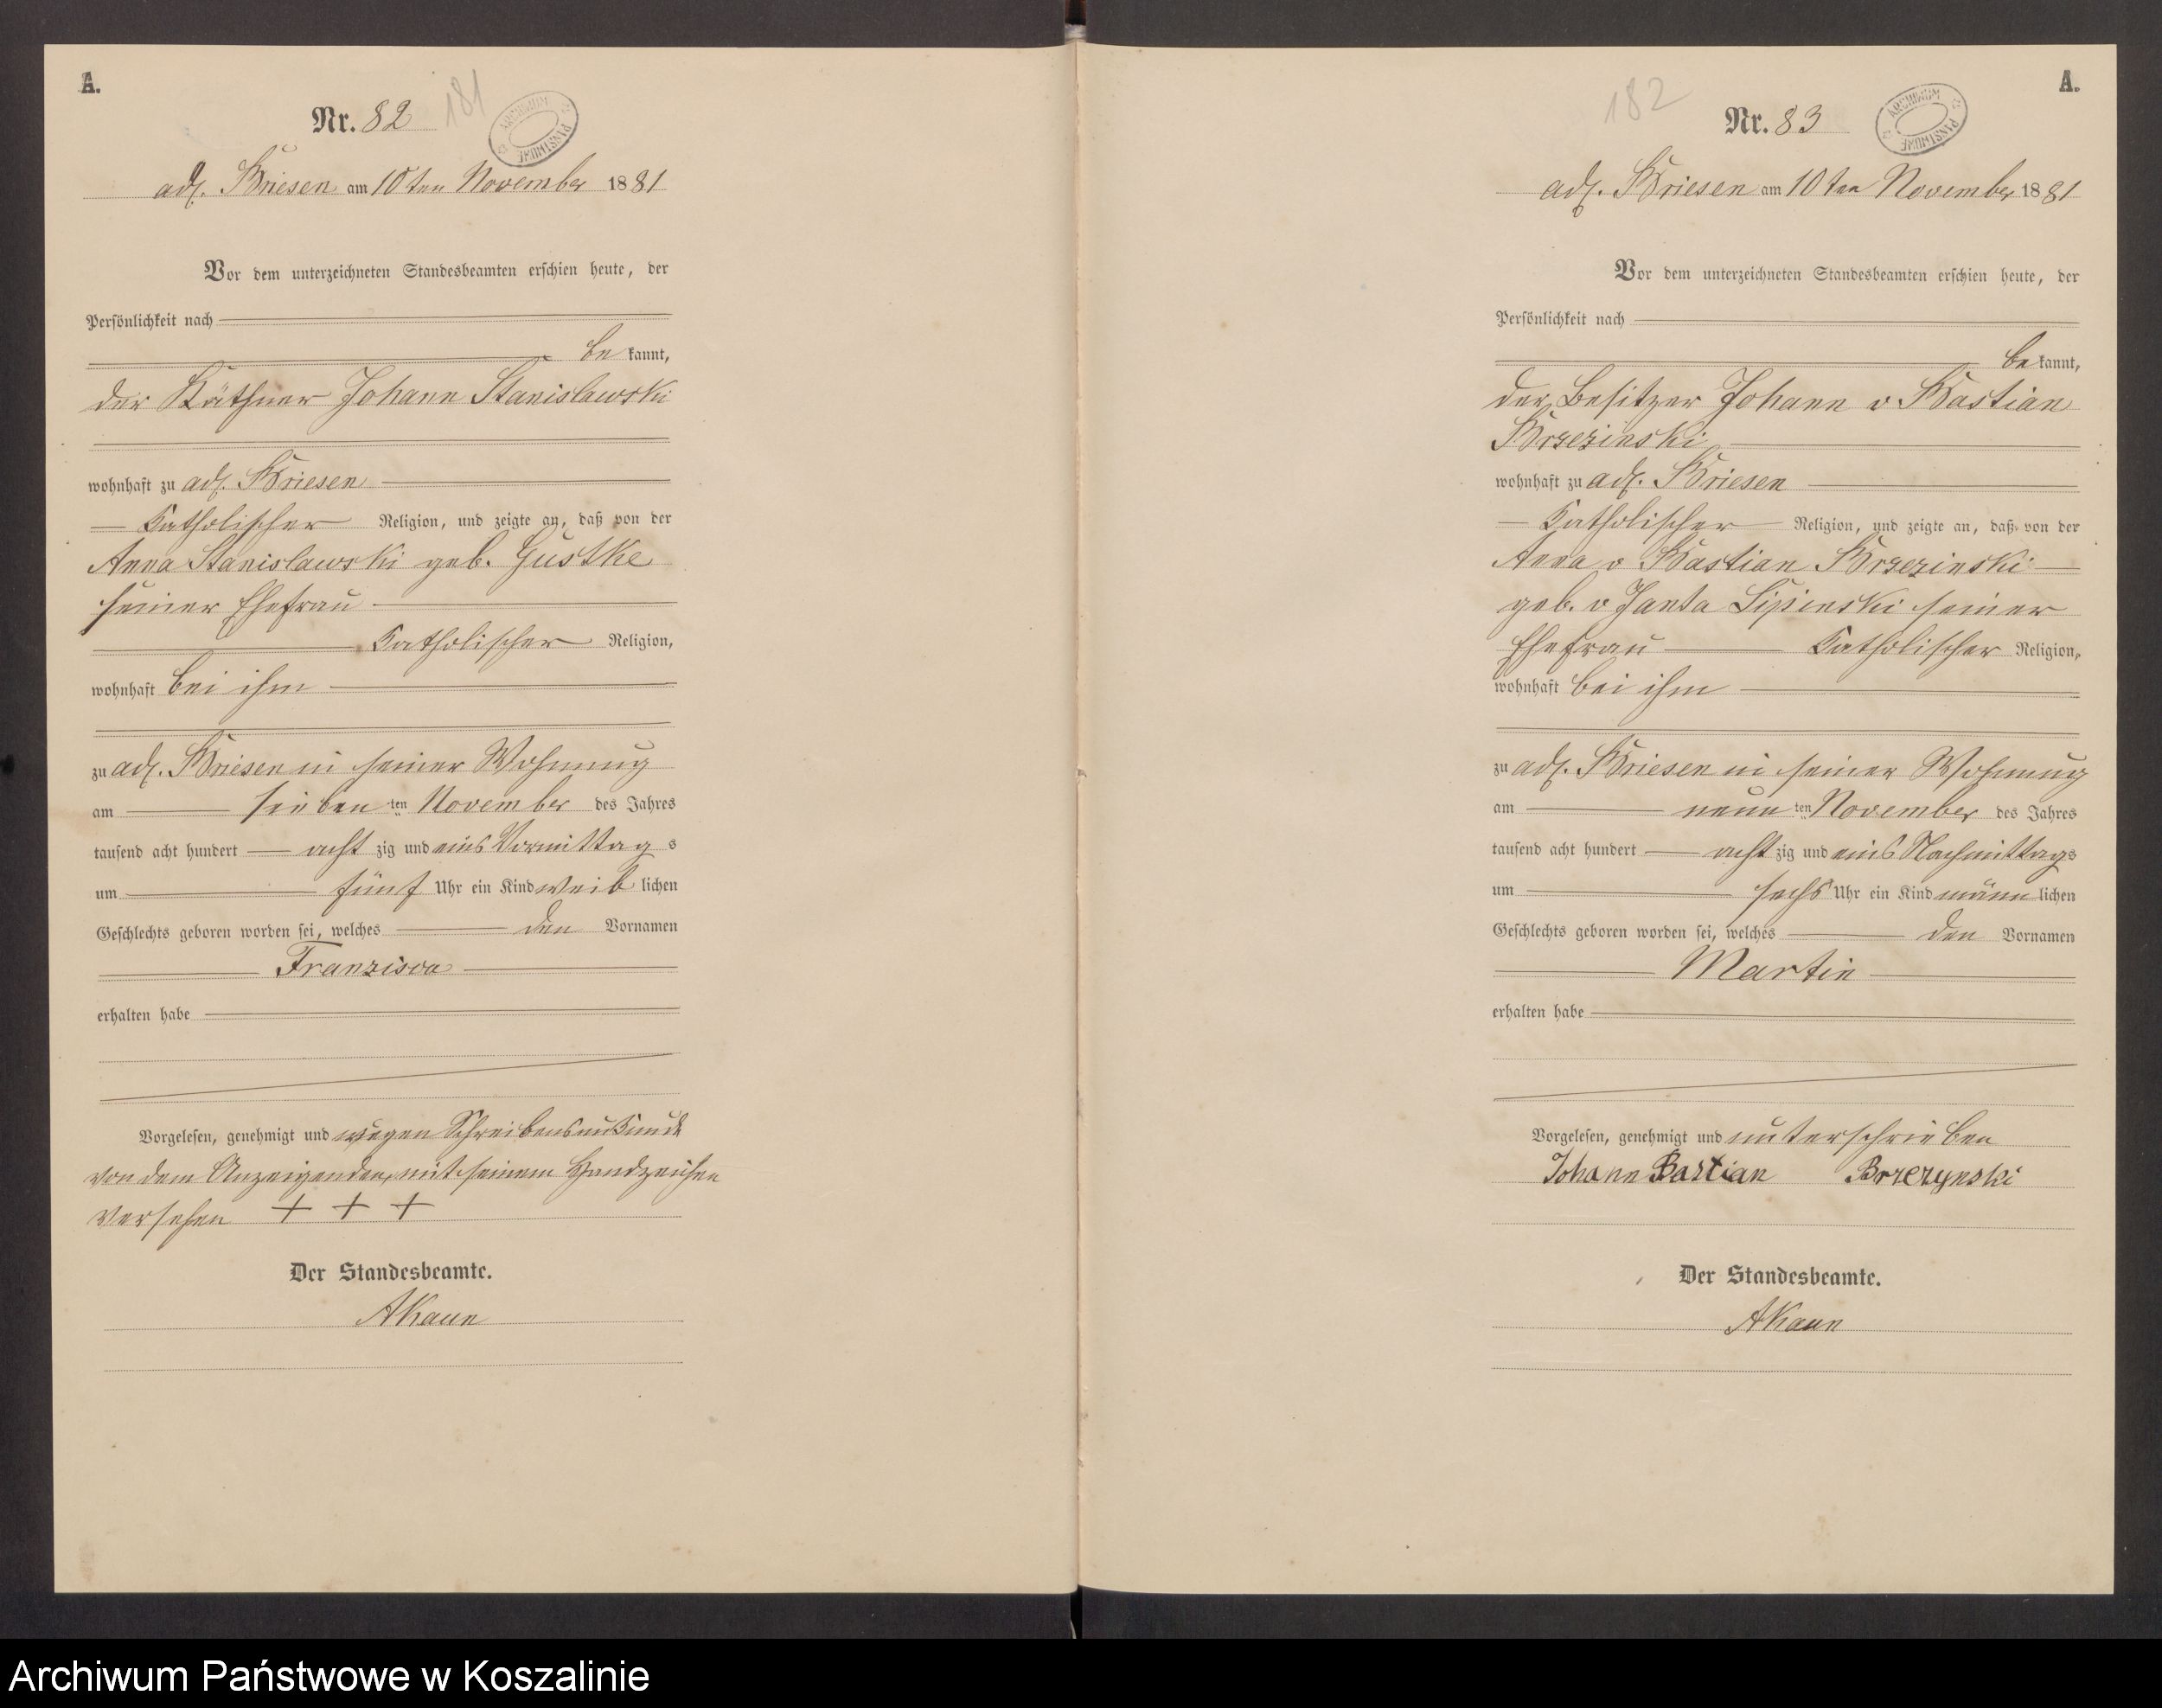 A.
Nr. 82
181
ARCHIWUM PAŃSTWOWE
adl. Briesen am 10ten November 1881
Vor dem unterzeichneten Standesbeamten erschien heute, der
Persönlichkeit nach
be kannt,
der Käthner Johann Stanislawski
wohnhaft zu adl. Briesen
katholischer Religion, und zeigte an, daß von der
Anna Stanislawski geb. Gustke
seiner Ehefrau
katholischer Religion,
wohnhaft bei ihm
zu adl. Briesen in seiner Wohnung
am sieben ten November des Jahres
tausend acht hundert acht zig und eins Vormittag s
um fünf Uhr ein Kind weib lichen
Geschlechts geboren worden sei, welches den Vornamen
Franzisca
erhalten habe
Vorgelesen, genehmigt und wegen Schreibensunkunde
von dem Anzeigenden, mit seinem Handzeichen
versehen + + +
Der Standesbeamte.
AKaun
A.
182
Nr. 83
ARCHIWUM PAŃSTWOWE
adl. Briesen am 10ten November 1881
Vor dem unterzeichneten Standesbeamten erschien heute, der
Persönlichkeit nach
be kannt,
der Besitzer Johann v Bastian
Brzezinski
wohnhaft zu adl. Briesen
katholischer Religion, und zeigte an, daß von der
Anna v Bastian Brzezinski
geb. v Janta Lipinski seiner
Ehefrau katholischer Religion,
wohnhaft bei ihm
zu adl. Briesen in seiner Wohnung
am neun ten November des Jahres
tausend acht hundert acht zig und eins Nachmittags
um sechs Uhr ein Kind männ lichen
Geschlechts geboren worden sei, welches den Vornamen
Martin
erhalten habe
Vorgelesen, genehmigt und unterschrieben
Johann Bastian Brzezynski
Der Standesbeamte.
AKaun
Archiwum Państwowe w Koszalinie